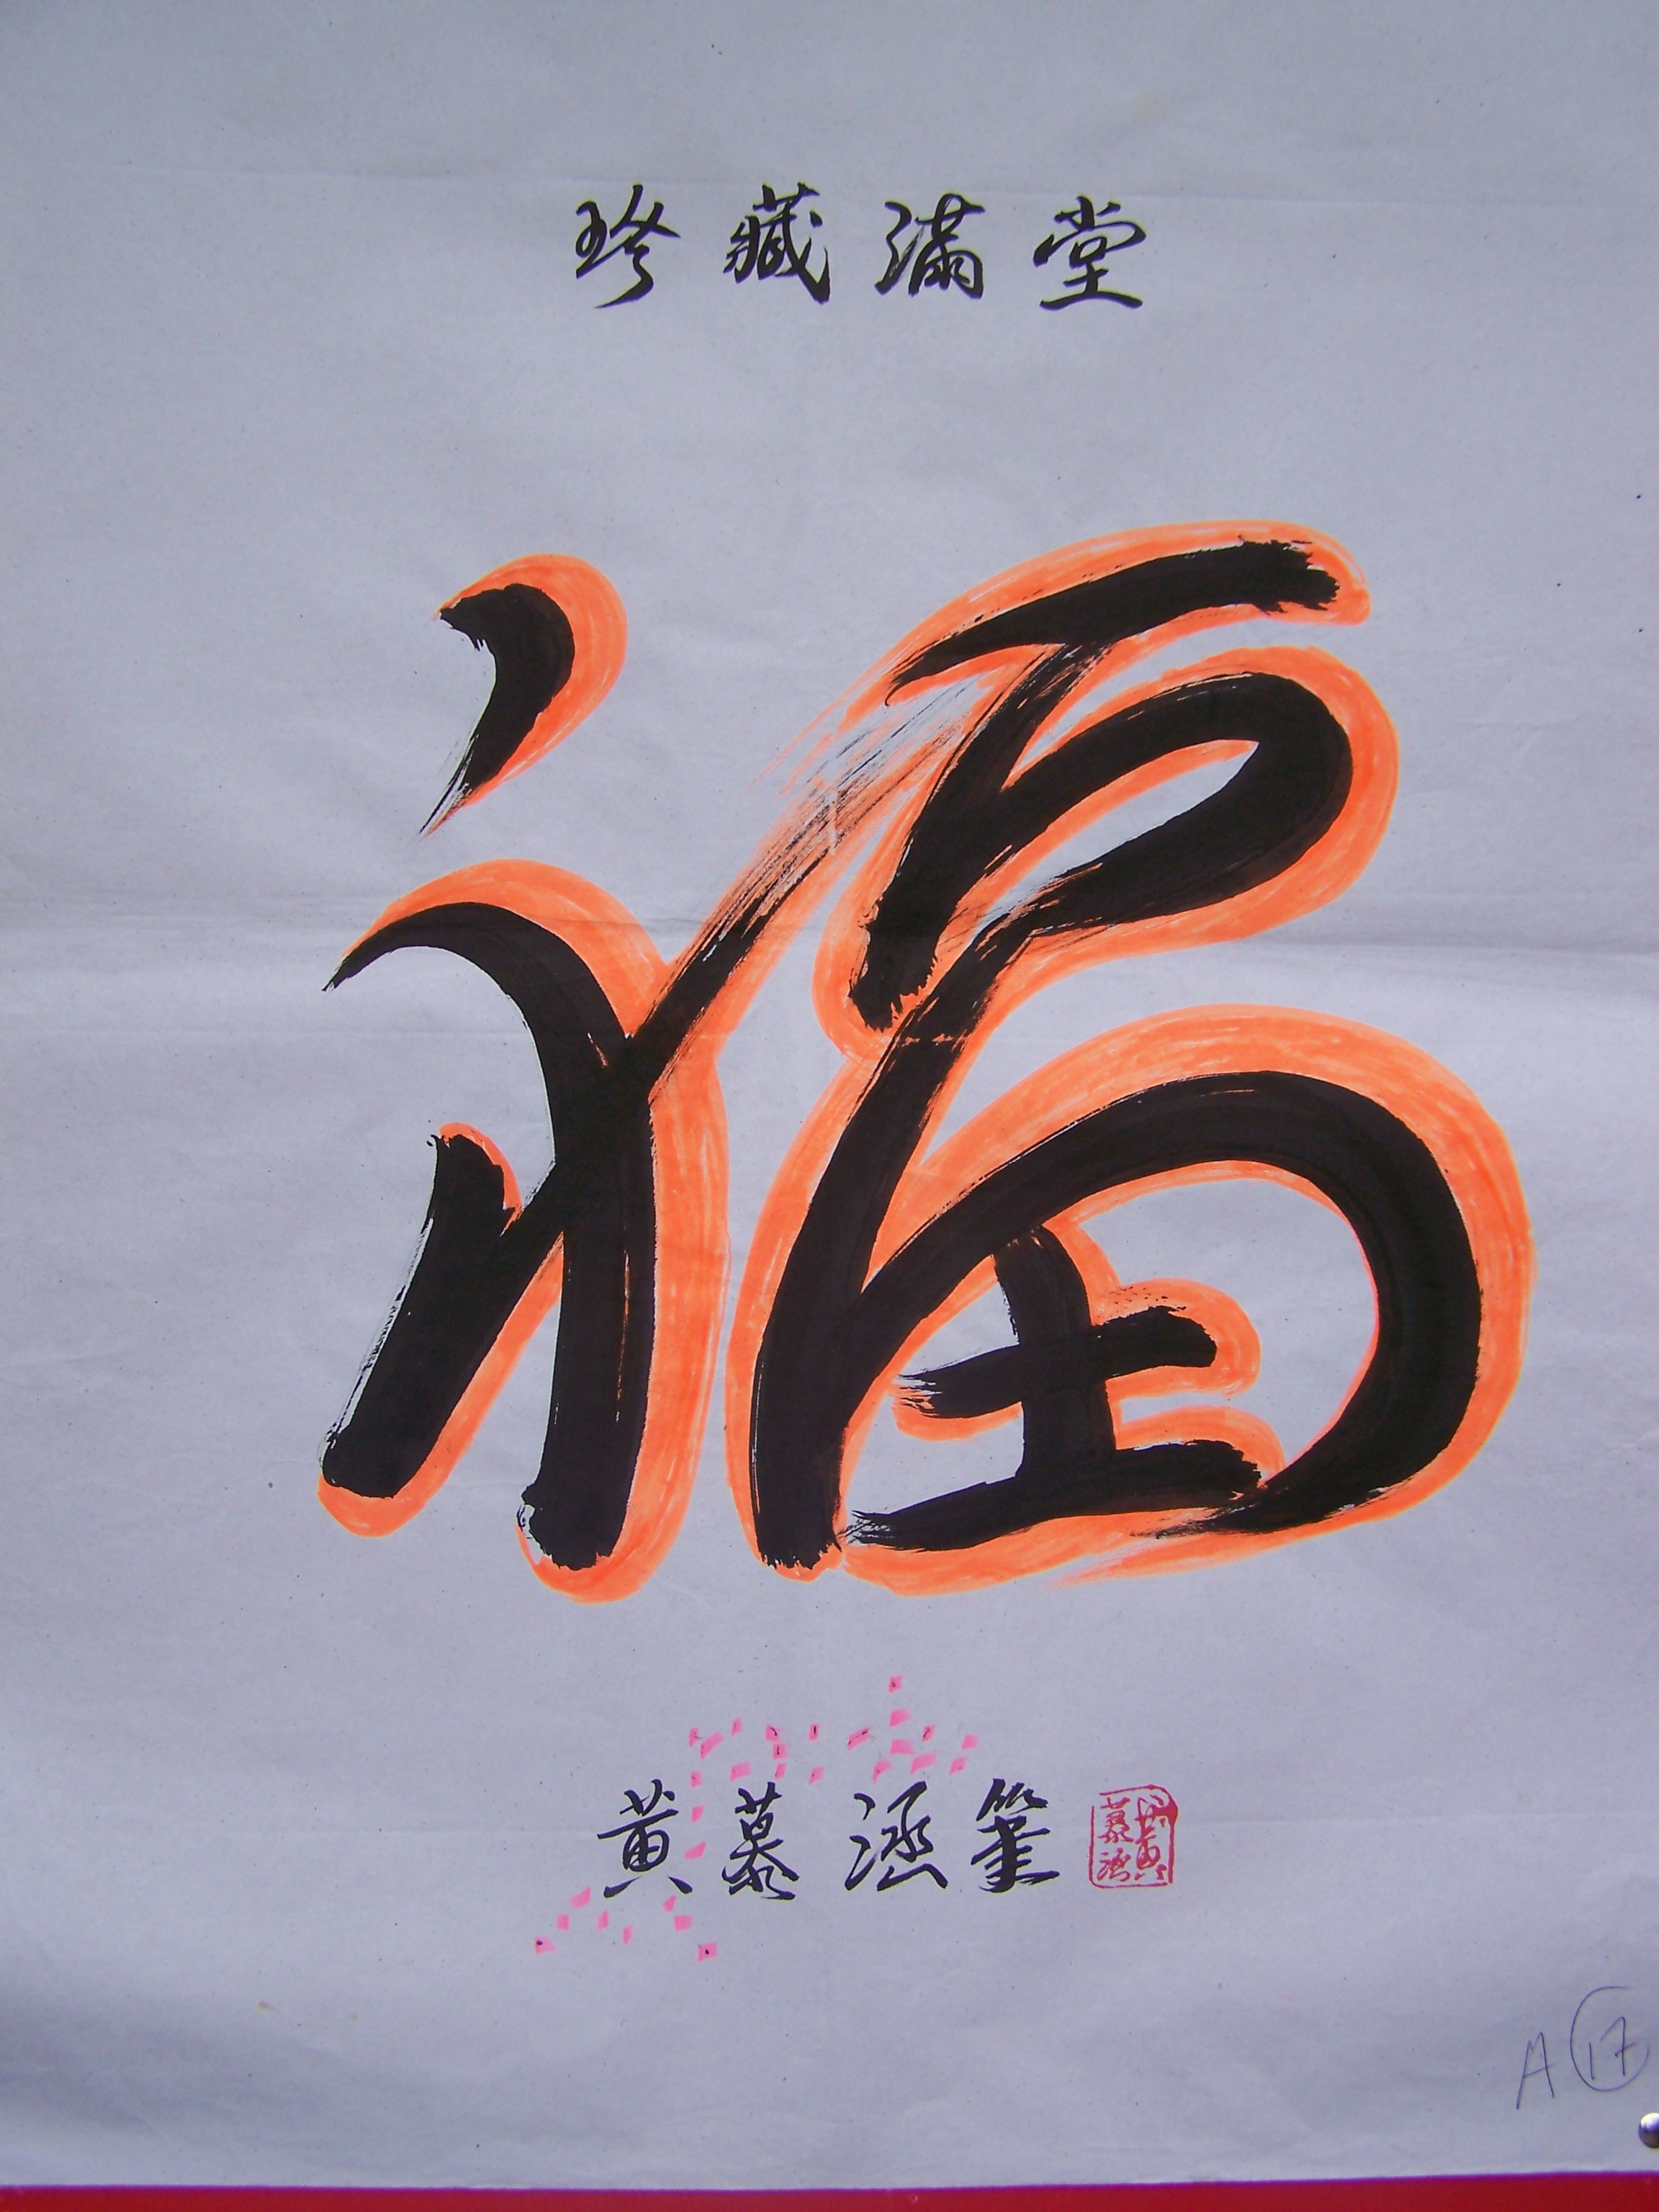 珍藏滿堂
福
黃慕涵筆
黃慕涵
A 17